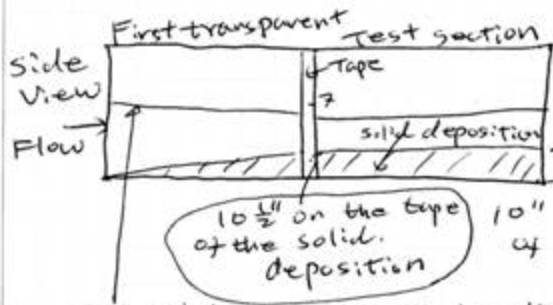 First transparent
Test section
side
view
Tape
7
Flow
solid deposition
10 1/2" on the tape
of the solid.
deposition
10"
of